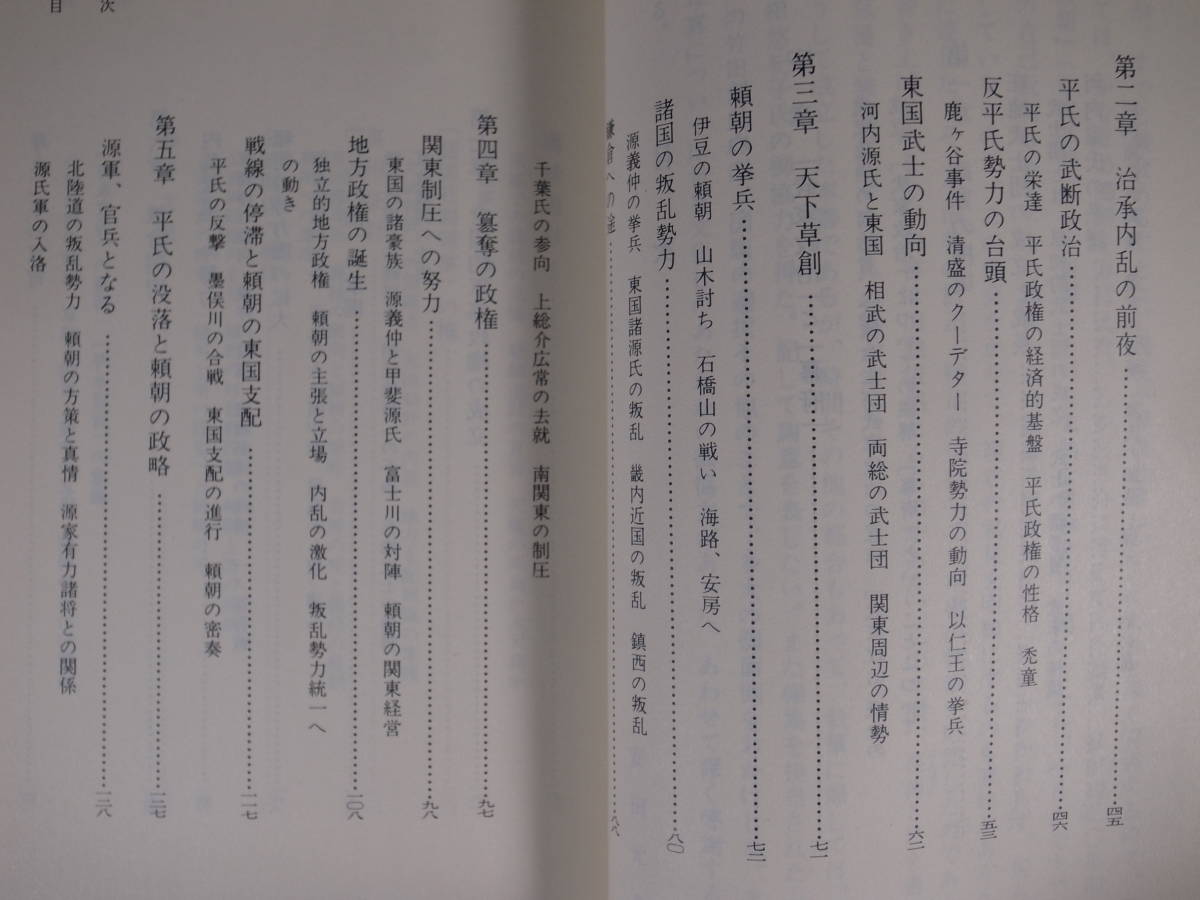 第二章　治承内乱の前夜……四五
平氏の武断政治……四六
平氏の栄達　平氏政権の経済的基盤　平氏政権の性格　禿童
反平氏勢力の台頭……五三
鹿ヶ谷事件　清盛のクーデター　寺院勢力の動向　以仁王の挙兵
東国武士の動向……六二
河内源氏と東国　相武の武士団　両総の武士団　関東周辺の情勢
第三章　天下草創……七一
頼朝の挙兵……七二
伊豆の頼朝　山木討ち　石橋山の戦い　海路、安房へ
諸国の叛乱勢力……八〇
源義仲の挙兵　東国諸源氏の叛乱　畿内近国の叛乱　鎮西の叛乱
鎌倉への途……八八
目　次
千葉氏の参向　上総介広常の去就　南関東の制圧
第四章　簒奪の政権……九七
関東制圧への努力……九八
東国の諸豪族　源義仲と甲斐源氏　富士川の対陣　頼朝の関東経営
地方政権の誕生……一〇八
独立的地方政権　頼朝の主張と立場　内乱の激化　叛乱勢力統一へ
の動き
戦線の停滞と頼朝の東国支配……一一七
平氏の反撃　墨俣川の合戦　東国支配の進行　頼朝の密奏
第五章　平氏の没落と頼朝の政略……一二七
源軍、官兵となる……一二八
北陸道の叛乱勢力　頼朝の方策と真情　源家有力諸将との関係
源氏軍の入洛